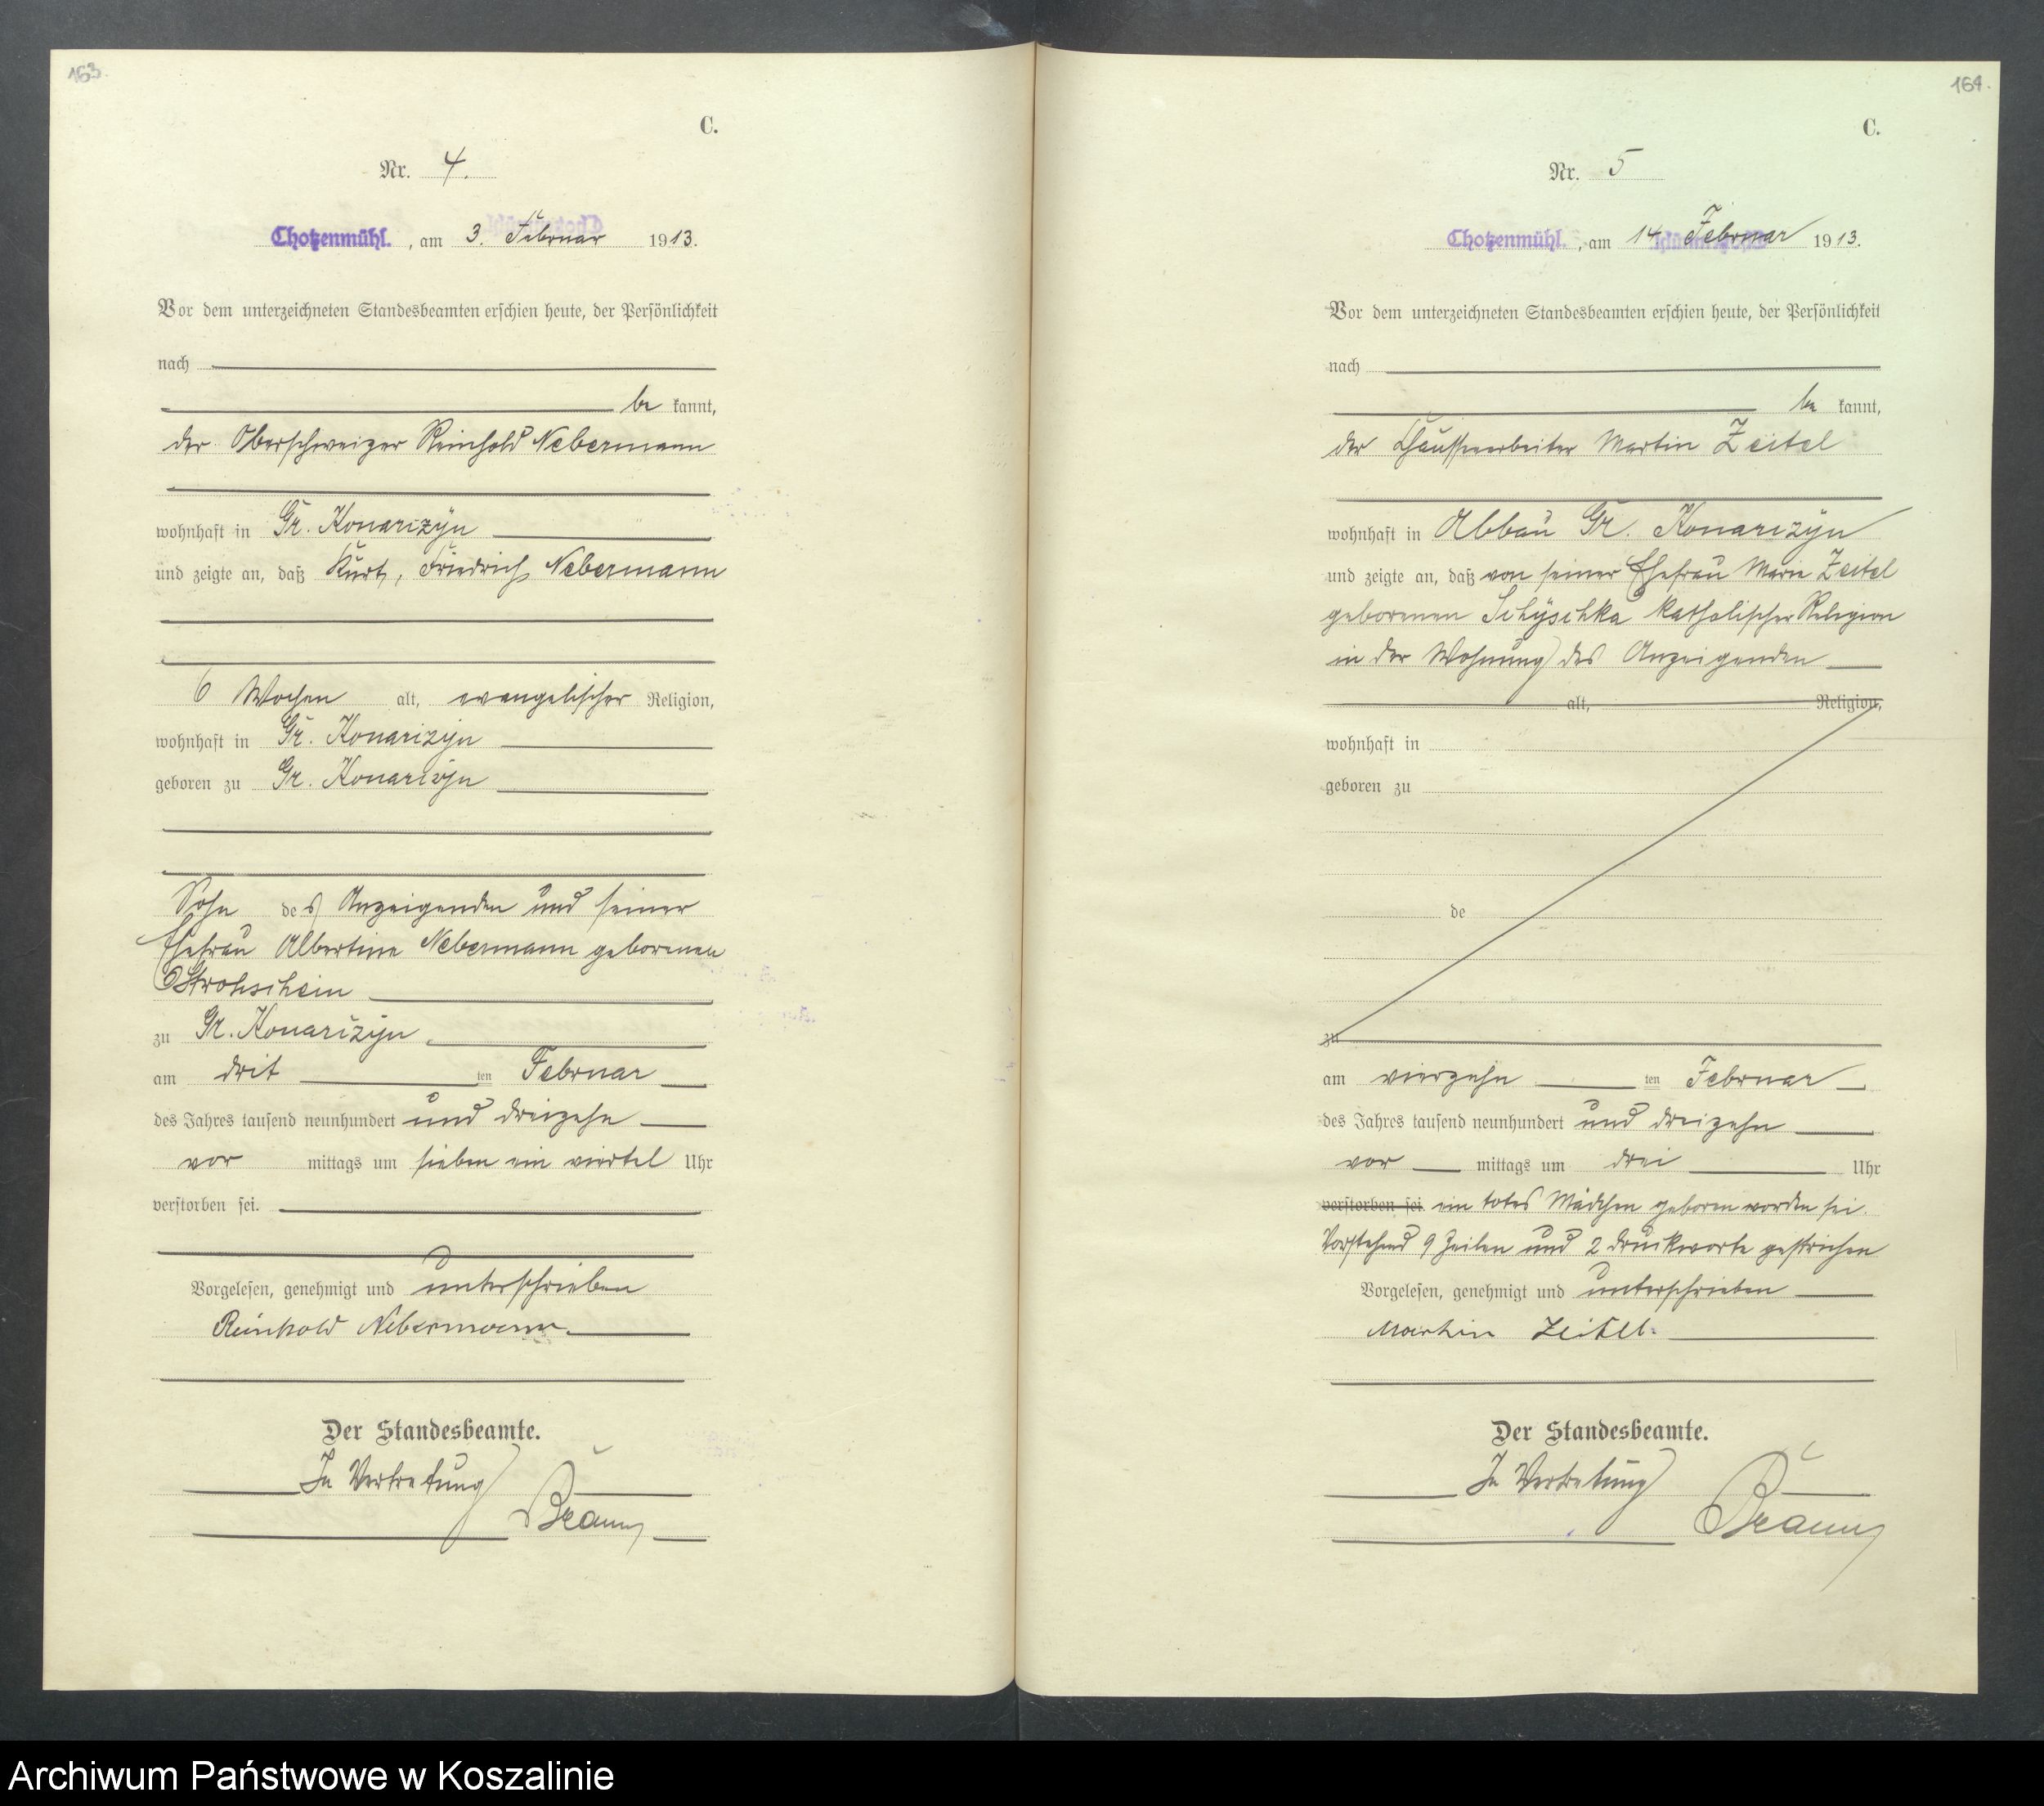 163.
C.
Nr. 4.
Chotzenmühl. , am 3. Februar 1913.
Vor dem unterzeichneten Standesbeamten erschien heute, der Persönlichkeit
nach
be kannt,
der Oberschweizer Reinhold Nebermann
wohnhaft in Gr. Konarizyn
und zeigte an, daß Kurt, Friedrich Nebermann
6 Wochen alt, evangelischer Religion,
wohnhaft in Gr. Konarizyn
geboren zu Gr. Konarizyn
Sohn des Anzeigenden und seiner
Ehefrau Albertine Nebermann geborenen
Strohschein
zu Gr. Konarizyn
am drit ten Februar
des Jahres tausend neunhundert und dreizehn
vor mittags um sieben ein viertel Uhr
verstorben sei.
Vorgelesen, genehmigt und unterschrieben
Reinhold Nebermann.
Der Standesbeamte.
In Vertretung
Braun
164.
C.
Nr. 5
Chotzenmühl. , am 14. Februar 1913.
Vor dem unterzeichneten Standesbeamten erschien heute, der Persönlichkeit
nach
be kannt,
der Chausseearbeiter Martin Zeitel
wohnhaft in Abbau Gr. Konarizyn
und zeigte an, daß von seiner Ehefrau Marie Zeitel
geborenen Schyschka katholischer Religion
in der Wohnung des Anzeigenden
alt, Religion,
wohnhaft in
geboren zu
de
zu
am vierzehn ten Februar
des Jahres tausend neunhundert und dreizehn
vor mittags um drei Uhr
verstorben sei ein totes Mädchen geboren worden sei.
Vorstehend 9 Zeilen und 2 Druckworte gestrichen
Vorgelesen, genehmigt und unterschrieben
Martin Zeitel.
Der Standesbeamte.
In Vertretung
Braun
Archiwum Państwowe w Koszalinie